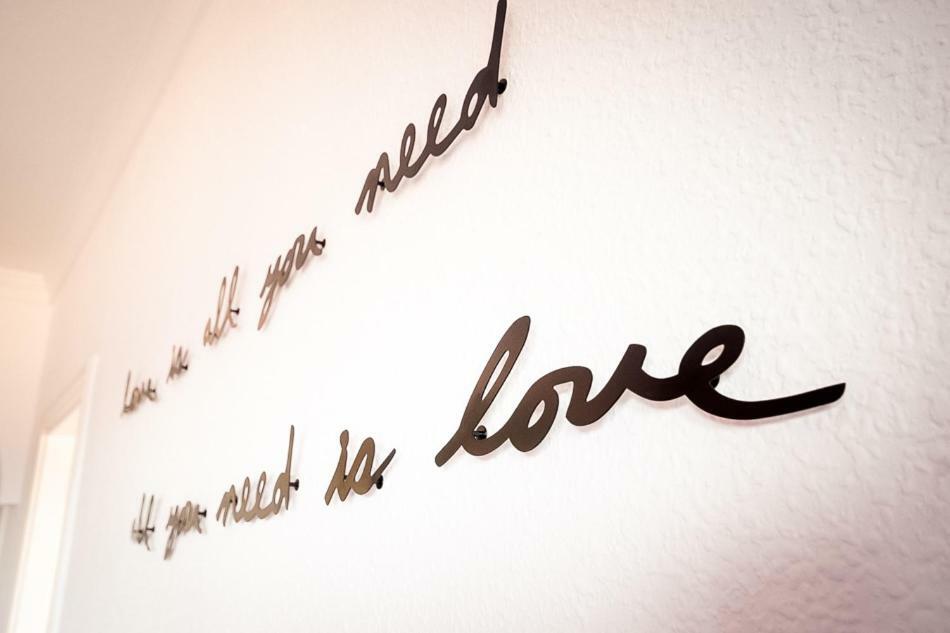 love is all you need
all you need is love